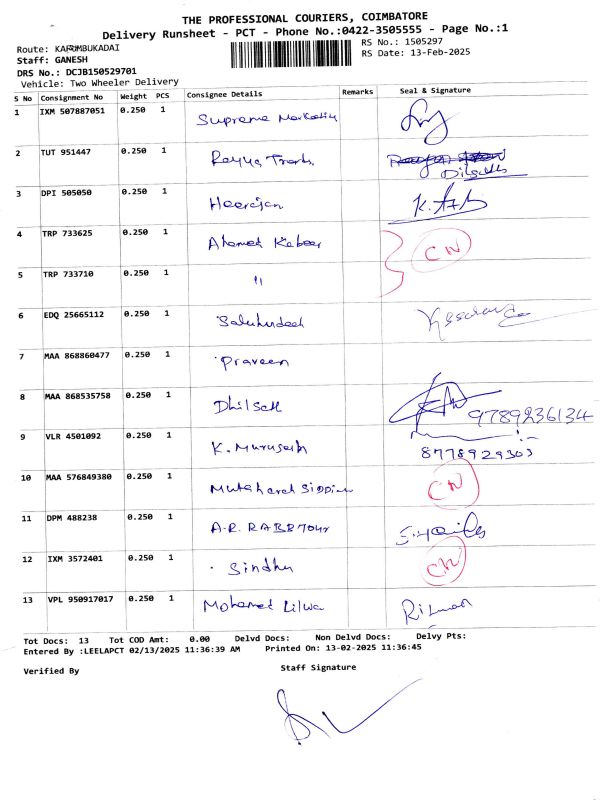 THE PROFESSIONAL COURIERS, COIMBATORE
Delivery Runsheet - PCT - Phone No.:0422-3505555 - Page No.:1
Route: KARUMBUKADAI
RS No.: 1505297
Staff: GANESH
RS Date: 13-Feb-2025
DRS No.: DCJB150529701
Vehicle: Two Wheeler Delivery
S No Consignment No Weight PCS Consignee Details Remarks Seal & Signature
1 IXM 507887051 0.250 1 Supreme
2 TUT 951447 0.250 1 Dilsath
3 DPI 505050 0.250 1 Heerajan
4 TRP 733625 0.250 1 Ahamed Kabeer CN
5 TRP 733710 0.250 1 "
6 EDQ 25665112 0.250 1
7 MAA 868860477 0.250 1 Praveen
8 MAA 868535758 0.250 1 9789236134
9 VLR 4501092 0.250 1 K. 8778929303
10 MAA 576849380 0.250 1 CN
11 DPM 488238 0.250 1 A.R.
12 IXM 3572401 0.250 1 Sindhu CN
13 VPL 950917017 0.250 1 Mohamed
Tot Docs: 13 Tot COD Amt: 0.00 Delvd Docs: Non Delvd Docs: Delvy Pts:
Entered By :LEELAPCT 02/13/2025 11:36:39 AM Printed On: 13-02-2025 11:36:45
Verified By Staff Signature